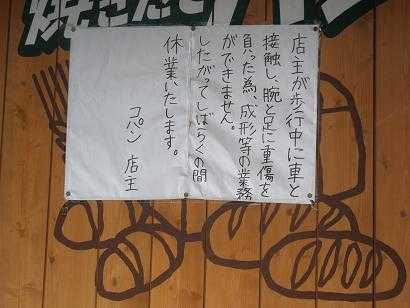 焼きたてパン
店主が歩行中に車と
接触し、腕と足に重傷を
負った為、成形等の業務
ができません。
したがってしばらくの間
休業いたします。
コパン 店主